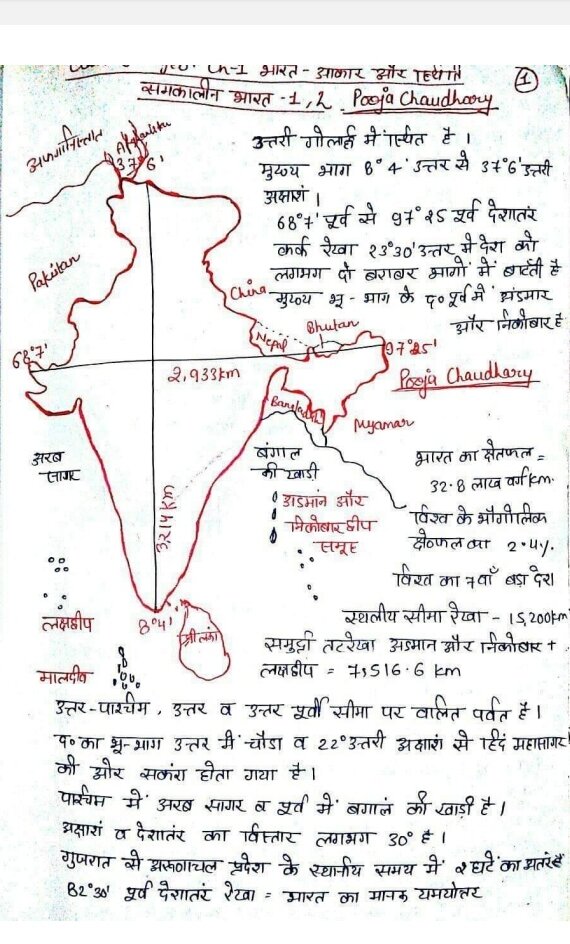 Ch-1 भारत - आकार और स्थिति
समकालीन भारत -1, 2 Pooja Chaudhary
1
उत्तरी गोलार्द्ध में स्थित है ।
मुख्य भाग 8° 4' उत्तर से 37°6' उत्तरी
अक्षांश ।
68°7' पूर्व से 97° 25 पूर्व देशातरं
कर्क रेखा 23°30' उत्तर में देश को
लगभग दो बराबर भागों में बाटंती है
मुख्य भू - भाग के द० पूर्व में अंडमार
और निकोबार है
अफगानिस्तान
37°6'
Pakistan
China
Nepal
Bhutan
68°7'
97°25'
2,933km
Pooja Chaudhary
Bangladesh
Myamar
अरब
सागर
बंगाल
की खाडी
3214 km
अडमांन और
निकोबार द्वीप
समूह
भारत का क्षेतफल =
32.8 लाख वर्ग km.
विश्व के भौगोलिक
क्षेत्रफल का 2.4%
विश्व का 7वाँ बडा देश
स्थलीय सीमा रेखा - 15,200km
लक्षद्वीप
8°4'
श्रीलंका
समुद्री तटरेखा अडमान और निकोबार +
लक्षद्वीप = 7,516.6 km
मालदीव
उत्तर-पश्चिम, उत्तर व उत्तर पूर्वी सीमा पर वालित पर्वत है ।
द० का भू-भाग उत्तर में चौडा व 22° उत्तरी अक्षाशं से हिदं महासागर
की ओर सकंरा होता गया है ।
पश्चिम में अरब सागर व पूर्व में बगालं की खाडी है ।
अक्षाशं व देशातरं का विस्तार लगभग 30° है ।
गुजरात से अरूणाचल प्रदेश के स्थानीय समय में २ घटें का अतंर है
82°30' पूर्व देशातरं रेखा = भारत का मानक याम्योत्तर